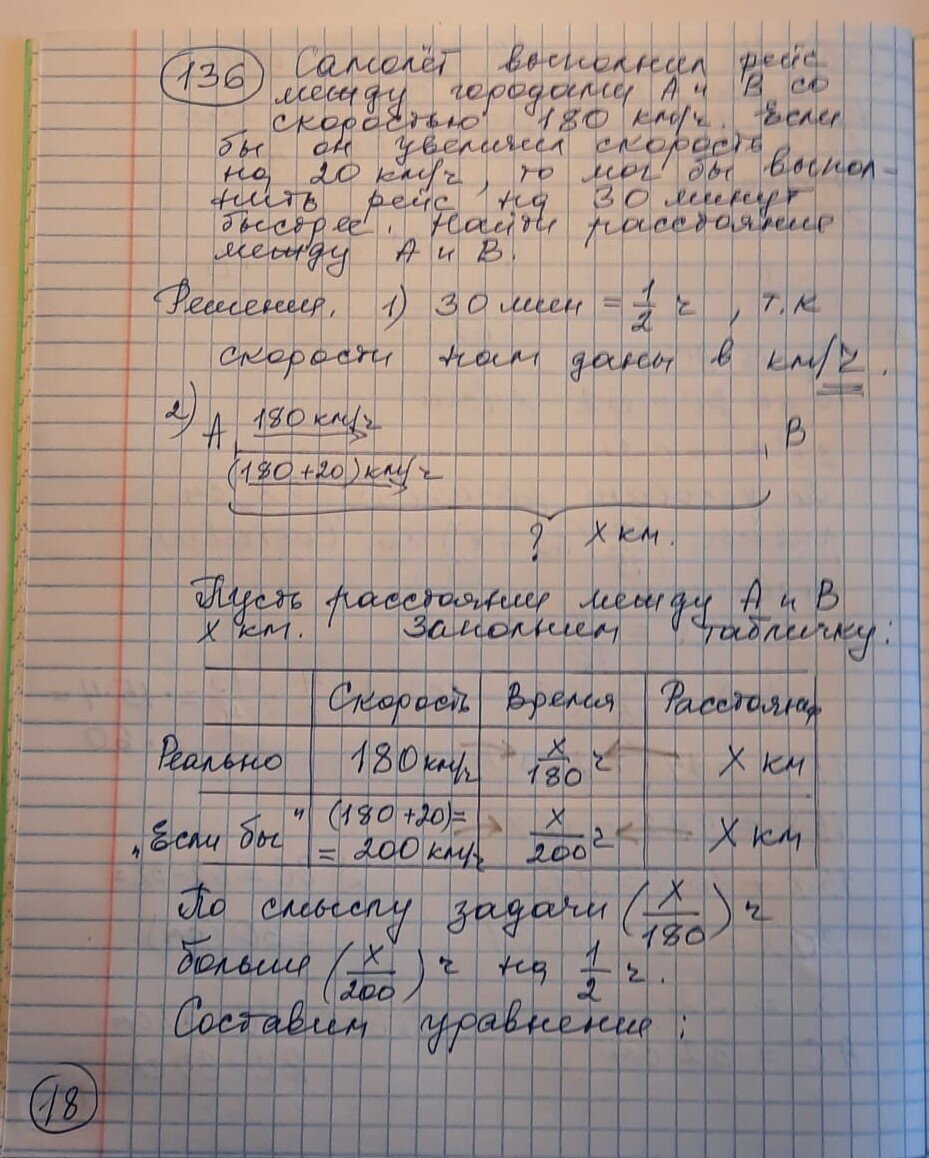 136 Самолёт выполнил рейс
между городами А и В со
скоростью 180 км/ч. Если
бы он увеличил скорость
на 20 км/ч, то мог бы выпол-
нить рейс на 30 минут
быстрее. Найти расстояние
между А и В.
Решение. 1) 30 мин = 1/2 ч, т.к
скорости нам даны в км/ч.
2) А 180 км/ч В
(180+20) км/ч
? X км.
Пусть расстояние между А и В
X км. Заполним табличку:
Скорость Время Расстояние
Реально 180 км/ч X/180 ч X км
„Если бы" (180+20)= = 200 км/ч X/200 ч X км
По смыслу задачи (X/180) ч
больше (X/200) ч на 1/2 ч.
Составим уравнение:
18